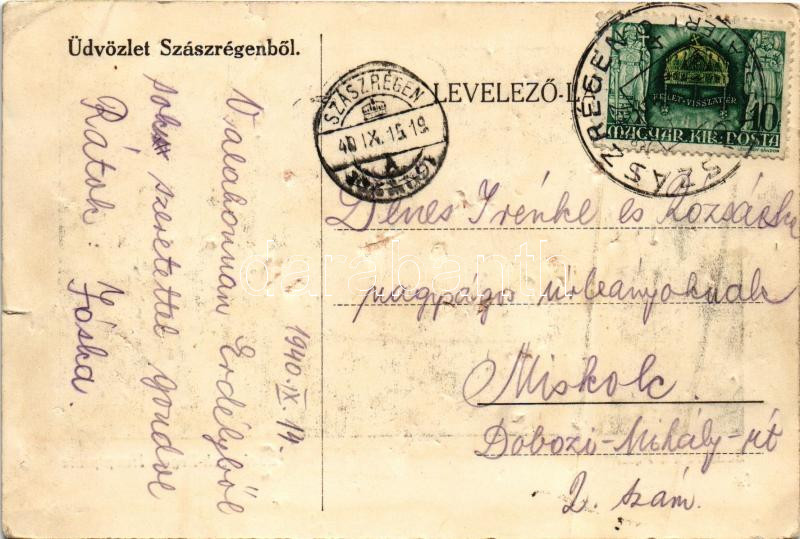 Üdvözlet Szászrégenből.
LEVELEZŐ-L
SZÁSZRÉGEN
40 IX. 15. 19
A
SZÁSZRÉGEN
KELET VISSZATÉR
10
MAGYAR KIR. POSTA
1940. IX. 14.
Valahonnan Erdélyből
sok szeretettel gondol
Rátok: Jóska.
Dénes Irénke és Rózsácska
nagyságos úrleányoknak
Miskolc.
Dobozi-Mihály-út
2. szám.
darabanth